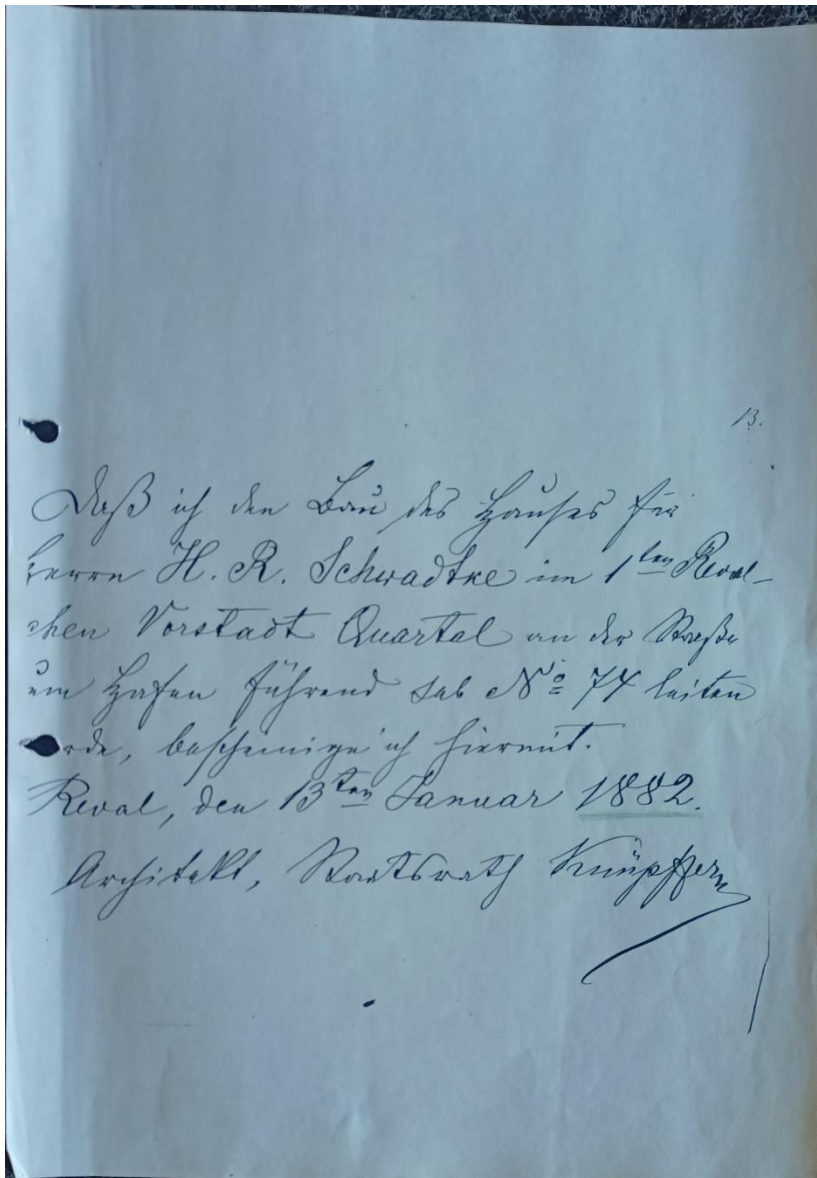 13.
Daß ich den Bau des Hauses für
Herrn H. R. Schwadtke im 1ten Reval-
chen Vorstadt Quartal an der Straße
um Hafen führend sub No 74 leiten
rde, bescheinige ich hiermit.
Reval, den 13ten Januar 1882.
Architekt, Staatsrath Knüpffer